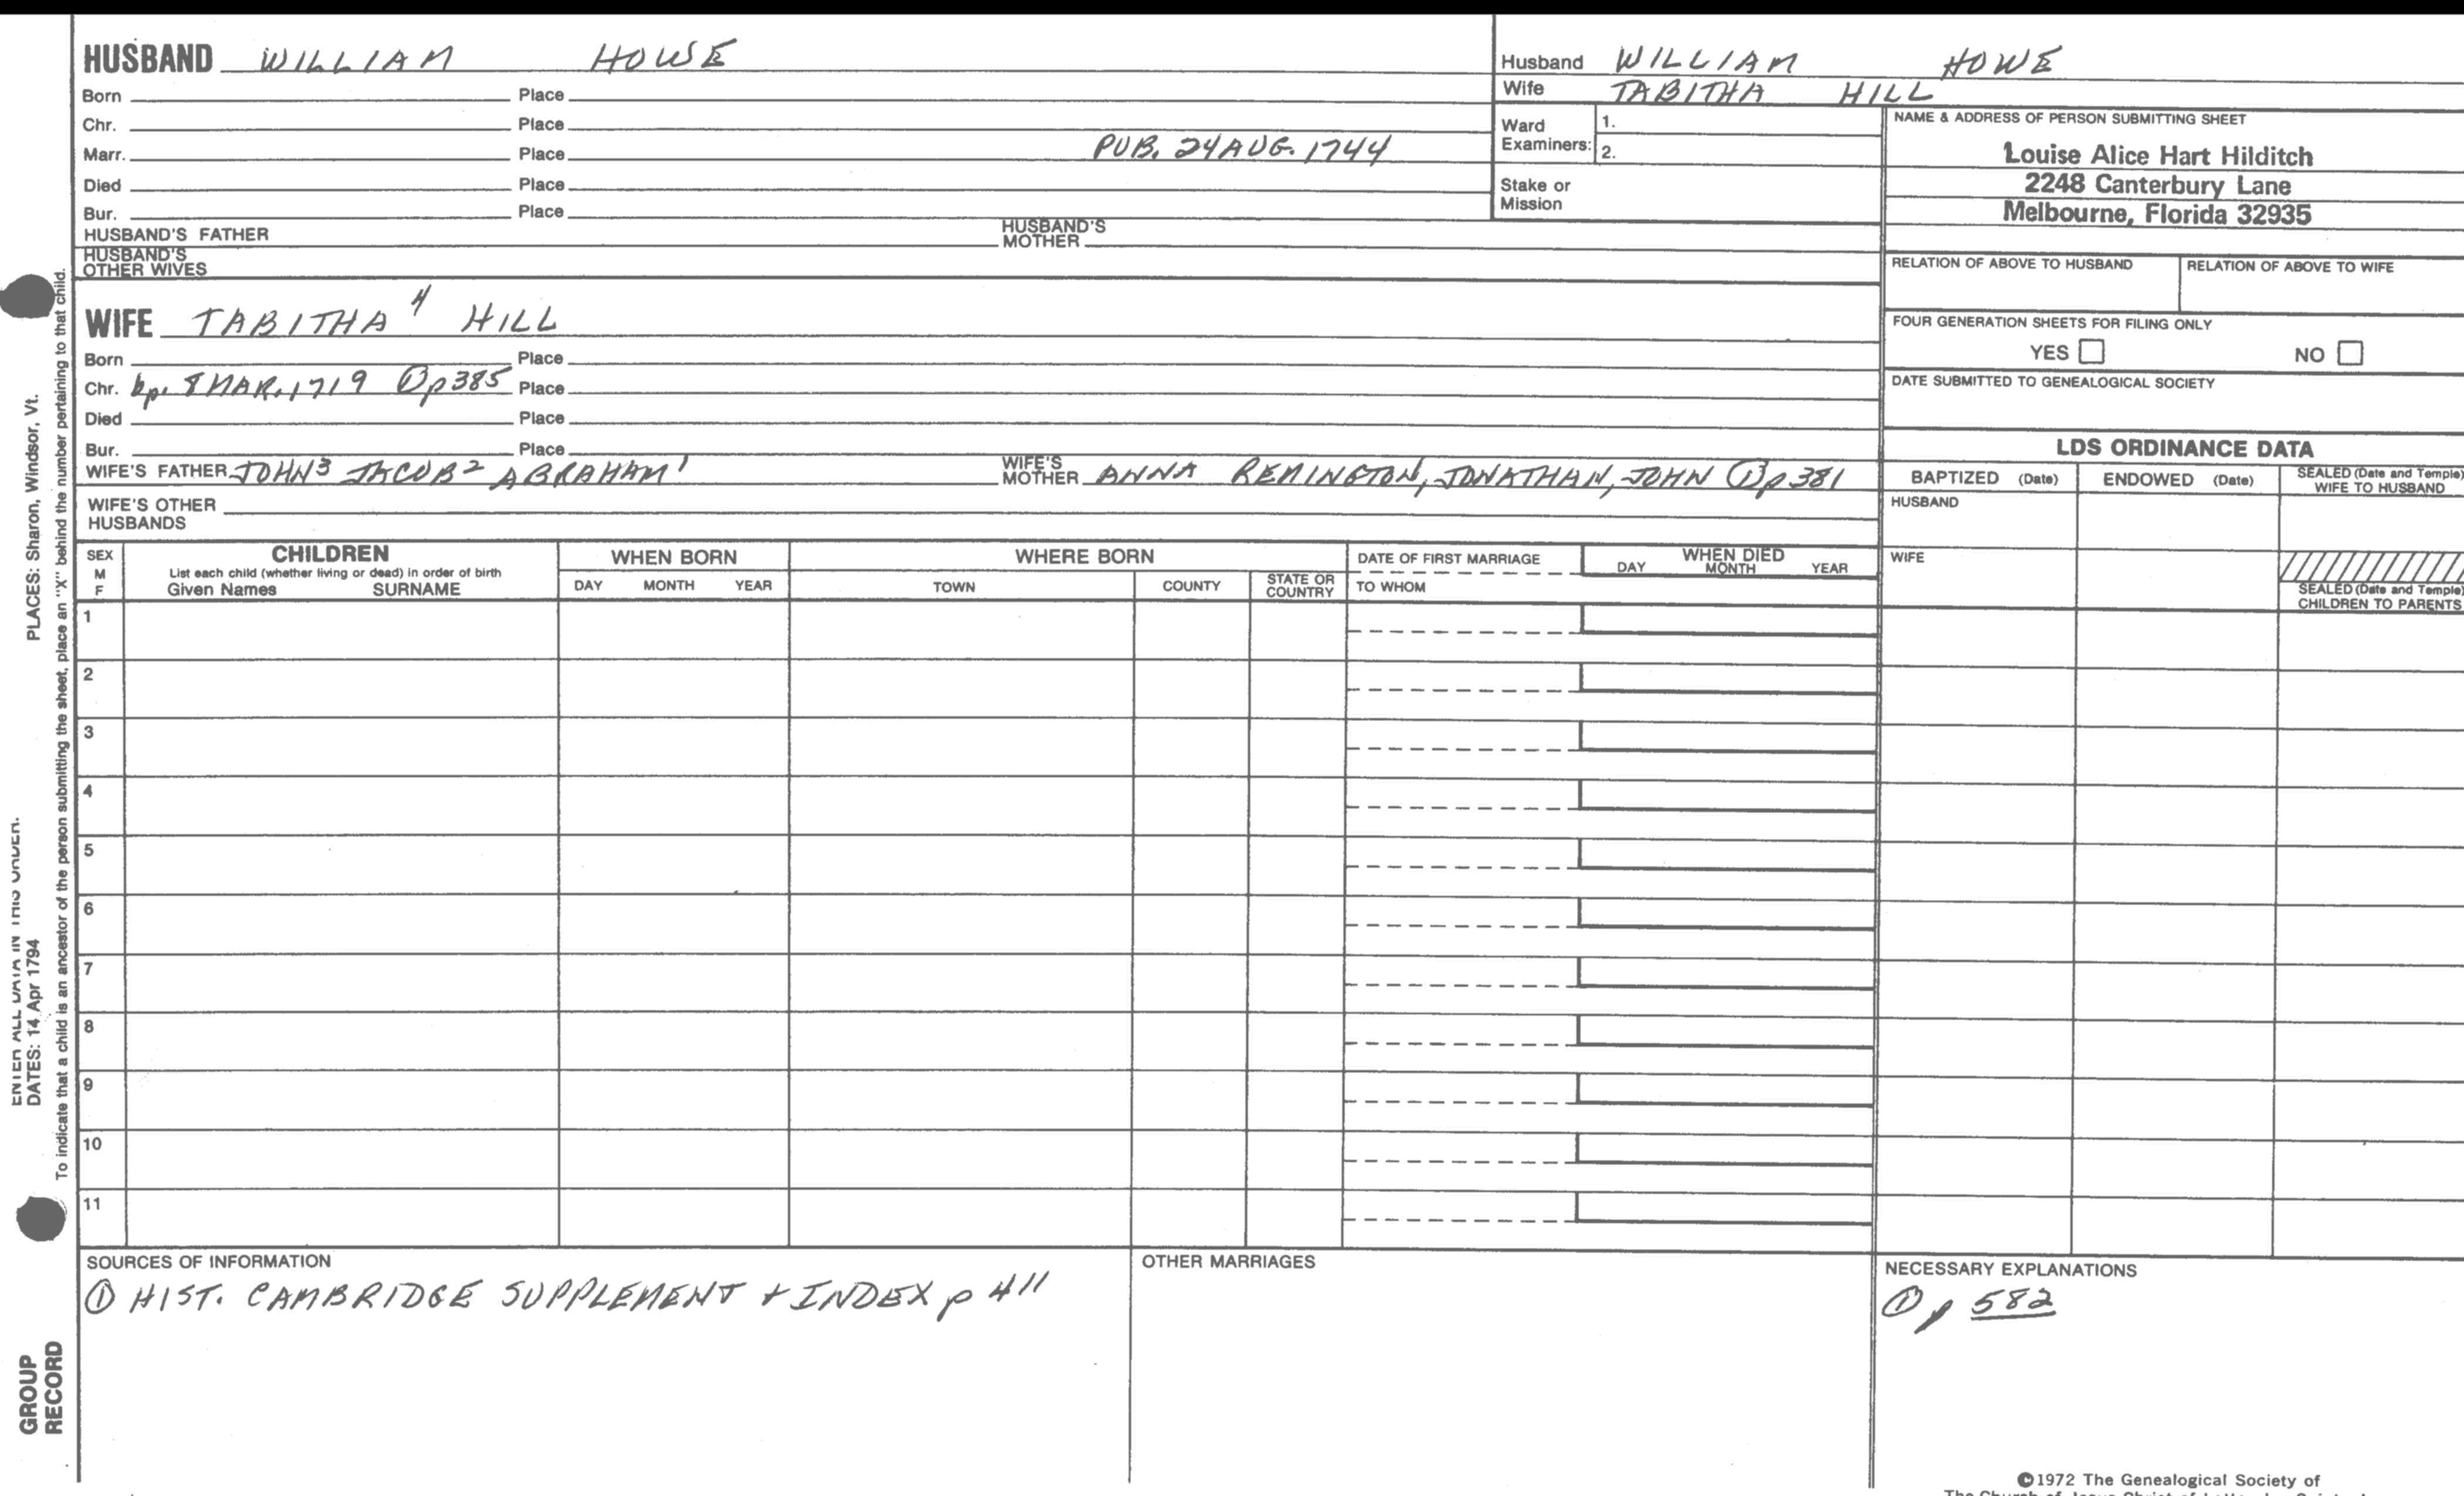 HUSBAND WILLIAM HOWE
Born Place
Chr. Place
Marr. Place PUB. 24 AUG. 1744
Died Place
Bur. Place
HUSBAND'S FATHER HUSBAND'S MOTHER
HUSBAND'S OTHER WIVES
Husband WILLIAM HOWE
Wife TABITHA HILL
Ward Examiners: 1.
2.
Stake or Mission
NAME & ADDRESS OF PERSON SUBMITTING SHEET
Louise Alice Hart Hilditch
2248 Canterbury Lane
Melbourne, Florida 32935
RELATION OF ABOVE TO HUSBAND RELATION OF ABOVE TO WIFE
FOUR GENERATION SHEETS FOR FILING ONLY
YES NO
DATE SUBMITTED TO GENEALOGICAL SOCIETY
WIFE TABITHA⁴ HILL
Born Place
Chr. bp. 8 MAR. 1719 ① p 385 Place
Died Place
Bur. Place
WIFE'S FATHER JOHN³ JACOB² ABRAHAM¹ WIFE'S MOTHER ANNA REMINGTON, JONATHAN, JOHN ① p 381
WIFE'S OTHER HUSBANDS
LDS ORDINANCE DATA
BAPTIZED (Date) ENDOWED (Date) SEALED (Date and Temple) WIFE TO HUSBAND
HUSBAND
WIFE
SEALED (Date and Temple) CHILDREN TO PARENTS
SEX M F
CHILDREN
List each child (whether living or dead) in order of birth
Given Names SURNAME
WHEN BORN
DAY MONTH YEAR
WHERE BORN
TOWN COUNTY STATE OR COUNTRY
DATE OF FIRST MARRIAGE
TO WHOM
WHEN DIED
DAY MONTH YEAR
1
2
3
4
5
6
7
8
9
10
11
SOURCES OF INFORMATION
① HIST. CAMBRIDGE SUPPLEMENT + INDEX p 411
OTHER MARRIAGES
NECESSARY EXPLANATIONS
① p 582
©1972 The Genealogical Society of
ENTER ALL DATA IN THIS ORDER.
DATES: 14 Apr 1794 PLACES: Sharon, Windsor, Vt.
To indicate that a child is an ancestor of the person submitting the sheet, place an "X" behind the number pertaining to that child.
GROUP
RECORD